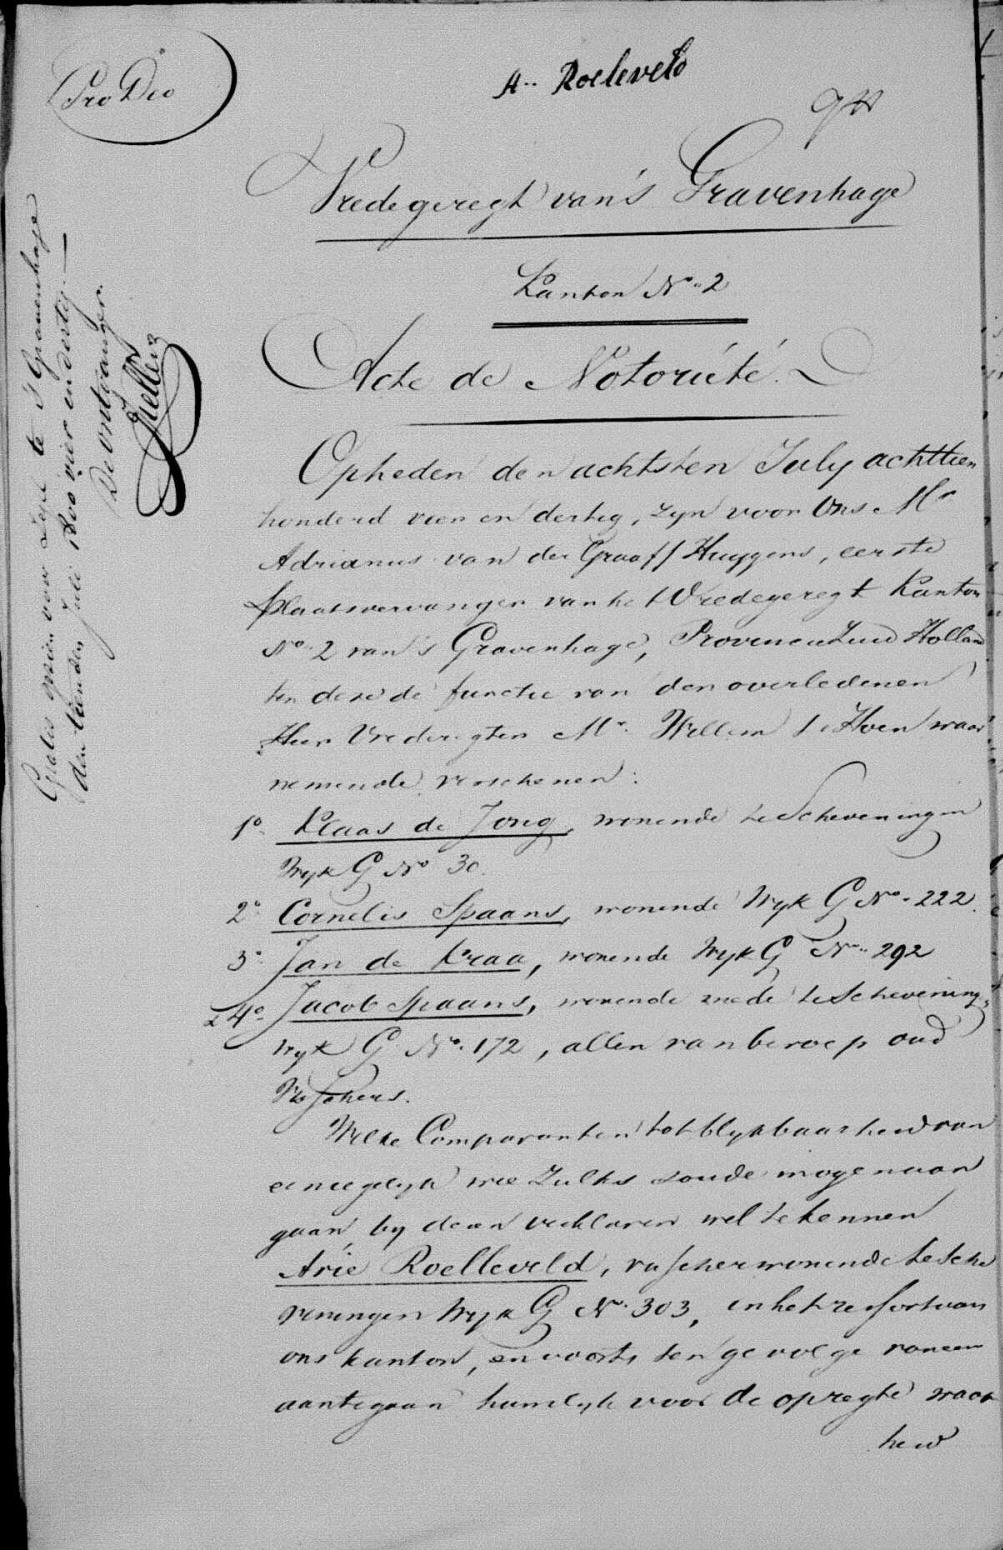 Pro Deo
A.. Roeleveld
Vredegeregt van 's Gravenhage
Kanton No. 2
Acte de Notoriété.
Gratis gezien voor Zegel te 's Gravenhage
den tienden Julij 1800 vier en dertig.
De ontvanger
Opheden den achtsten July achttien
honderd vier en dertig, zyn voor Ons Mr
Adrianus van der Graaff Huygens, eerste
plaatsvervanger van het Vredegeregt Kanton
No. 2 van 's Gravenhage, Provincie Zuid Holland
ten deze de functie van den overledenen
Heer Vrederegter Mr. Willem 't Hoen waar
nemende, verschenen:
1o. Klaas de Jong, wonende te Scheveningen
Wyk G No 30.
2o. Cornelis Spaans, wonende Wyk G No. 222.
3o. Jan de Kraa, wonende Wyk G No. 292
& 4o. Jacob Spaans, wonende mede te Schevening.
Wyk G No. 172, allen van beroep oud
Visschers.
Welke Comparanten tot blykbaarheid van
een iegelyk wie zulks zoude mogen aan
gaan, by dezen verklaren wel te kennen
Arie Roelleveld, visscher wonende te Sche
veningen Wyk G No. 303, in het ressort van
ons kanton, en voorts ten gevolge van een
aantegaan huwelyk voor de opregte waar
heid